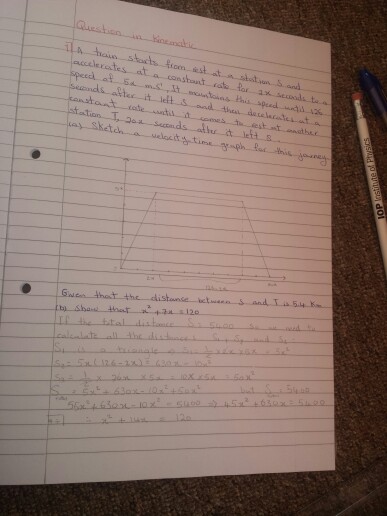 Question in Kinematic
A train starts from rest at a station S and
accelerates at a constant rate for 2x seconds to a
speed of 5x ms⁻¹. It maintains this speed until 126
seconds after it left S and then decelerates at a
constant rate until it comes to rest at another
station T 20x seconds after it left S.
(a) Sketch a velocity-time graph for this journey
Given that the distance between S and T is 5.4 Km
show that x² + 7x = 120
If the total distance S = 5400 so we need to
calculate all the distance S₁, S₂ and S₃
S₁ is a triangle
= 5x²
S₂ = 5x(126-2x) = 630x - 10x²
but S = 5400
total
- 10x² = 5400
+ 630x = 5400
x² + 14x = 120
IOP Institute of Physics